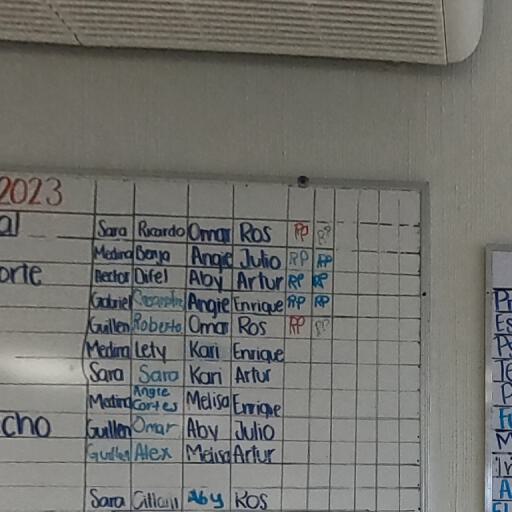 2023
al Sara Ricardo Omar Ros RP RP
Medina Benja Angie Julio RP RP
orte Hector Difel Aby Artur RP RP
Gabriel Angie Enrique RP RP
Guillen Roberto Omar Ros RP RP
Medina Lety Kari Enrique
Sara Sara Kari Artur
Medina Angie Cortes Melisa Enrique
cho Guillen Omar Aby Julio
Guillen Alex Melisa Artur
Sara Aby Ros